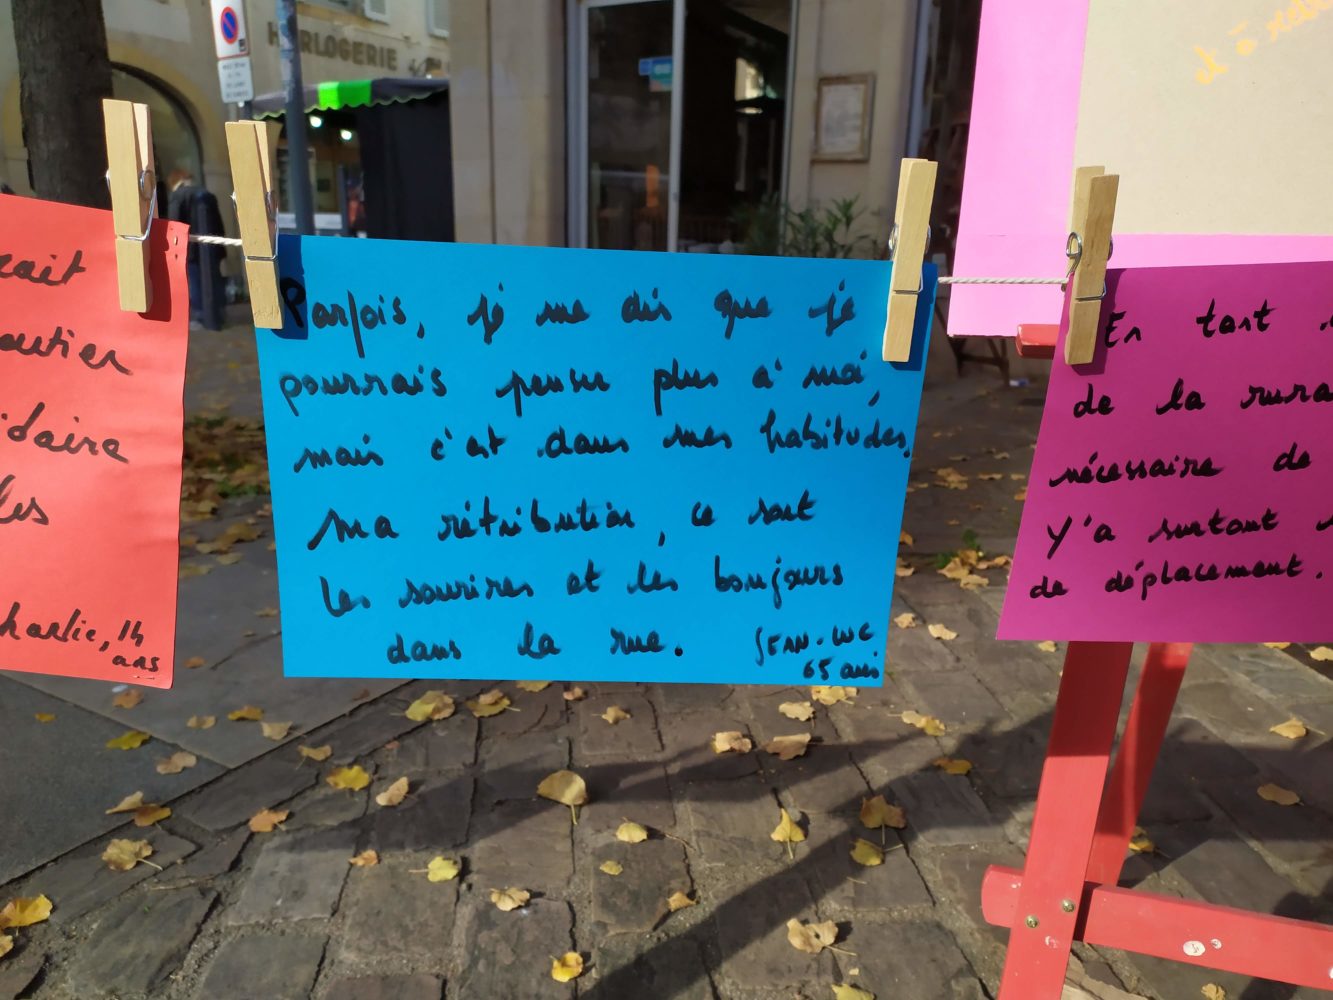 HORLOGERIE
et à
rait
Parfois, je me dis que je
pourrais penser plus à moi,
mais c'est dans mes habitudes.
Ma rétribution, ce sont
les sourires et les bonjours
dans la rue. JEAN-LUC
65 ans
idaire
les
Charlie, 14
ans
En tant
de la rura
nécessaire de
Y'a surtout
de déplacement.